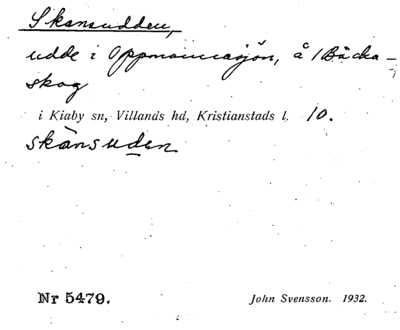 Skansudden,
udde i Oppmannasjön, å /Bäcka-
skog
i Kiaby sn, Villands hd, Kristianstads l. 10.
skánsuden
Nr 5479.
John Svensson. 1932.